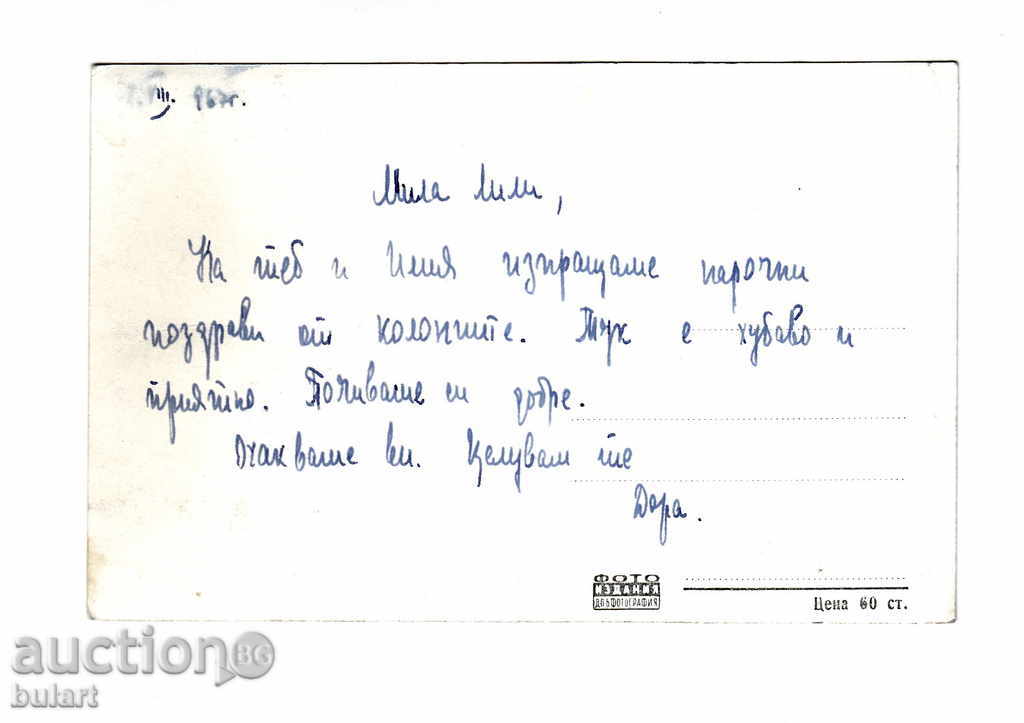 III. 967г.
Мила Лили,
На теб и Имия изпращаме парочни
поздрави от колонците. Тук е хубаво и
приятно. Почиваме си добре.
Очакваме ви. Целувам те
Дора.
ФОТО
ИЗДАНИЯ
ДП БЪЛГ. ФОТОГРАФИЯ
Цена 60 ст.
auction BG
bulart